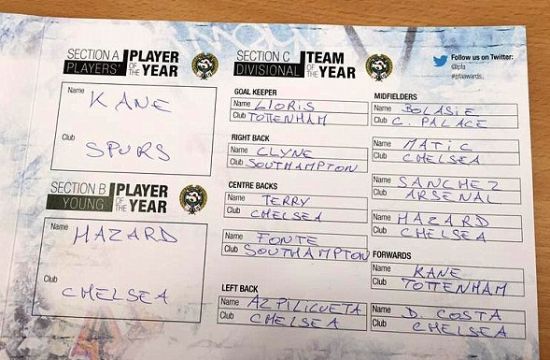 SECTION A
PLAYERS'
PLAYER
OF THE YEAR
Name
KANE
Club
SPURS
SECTION B
YOUNG
PLAYER
OF THE YEAR
Name
HAZARD
Club
CHELSEA
SECTION C
DIVISIONAL
TEAM
OF THE YEAR
GOAL KEEPER
Name LLORIS
Club TOTTENHAM
RIGHT BACK
Name CLYNE
Club SOUTHAMPTON
CENTRE BACKS
Name TERRY
Club CHELSEA
Name FONTE
Club SOUTHAMPTON
LEFT BACK
Name AZPILICUETA
Club CHELSEA
Follow us on Twitter:
@pfa
#pfaawards
MIDFIELDERS
Name BOLASIE
Club C. PALACE
Name MATIC
Club CHELSEA
Name SANCHEZ
Club ARSENAL
Name HAZARD
Club CHELSEA
FORWARDS
Name KANE
Club TOTTENHAM
Name D. COSTA
Club CHELSEA